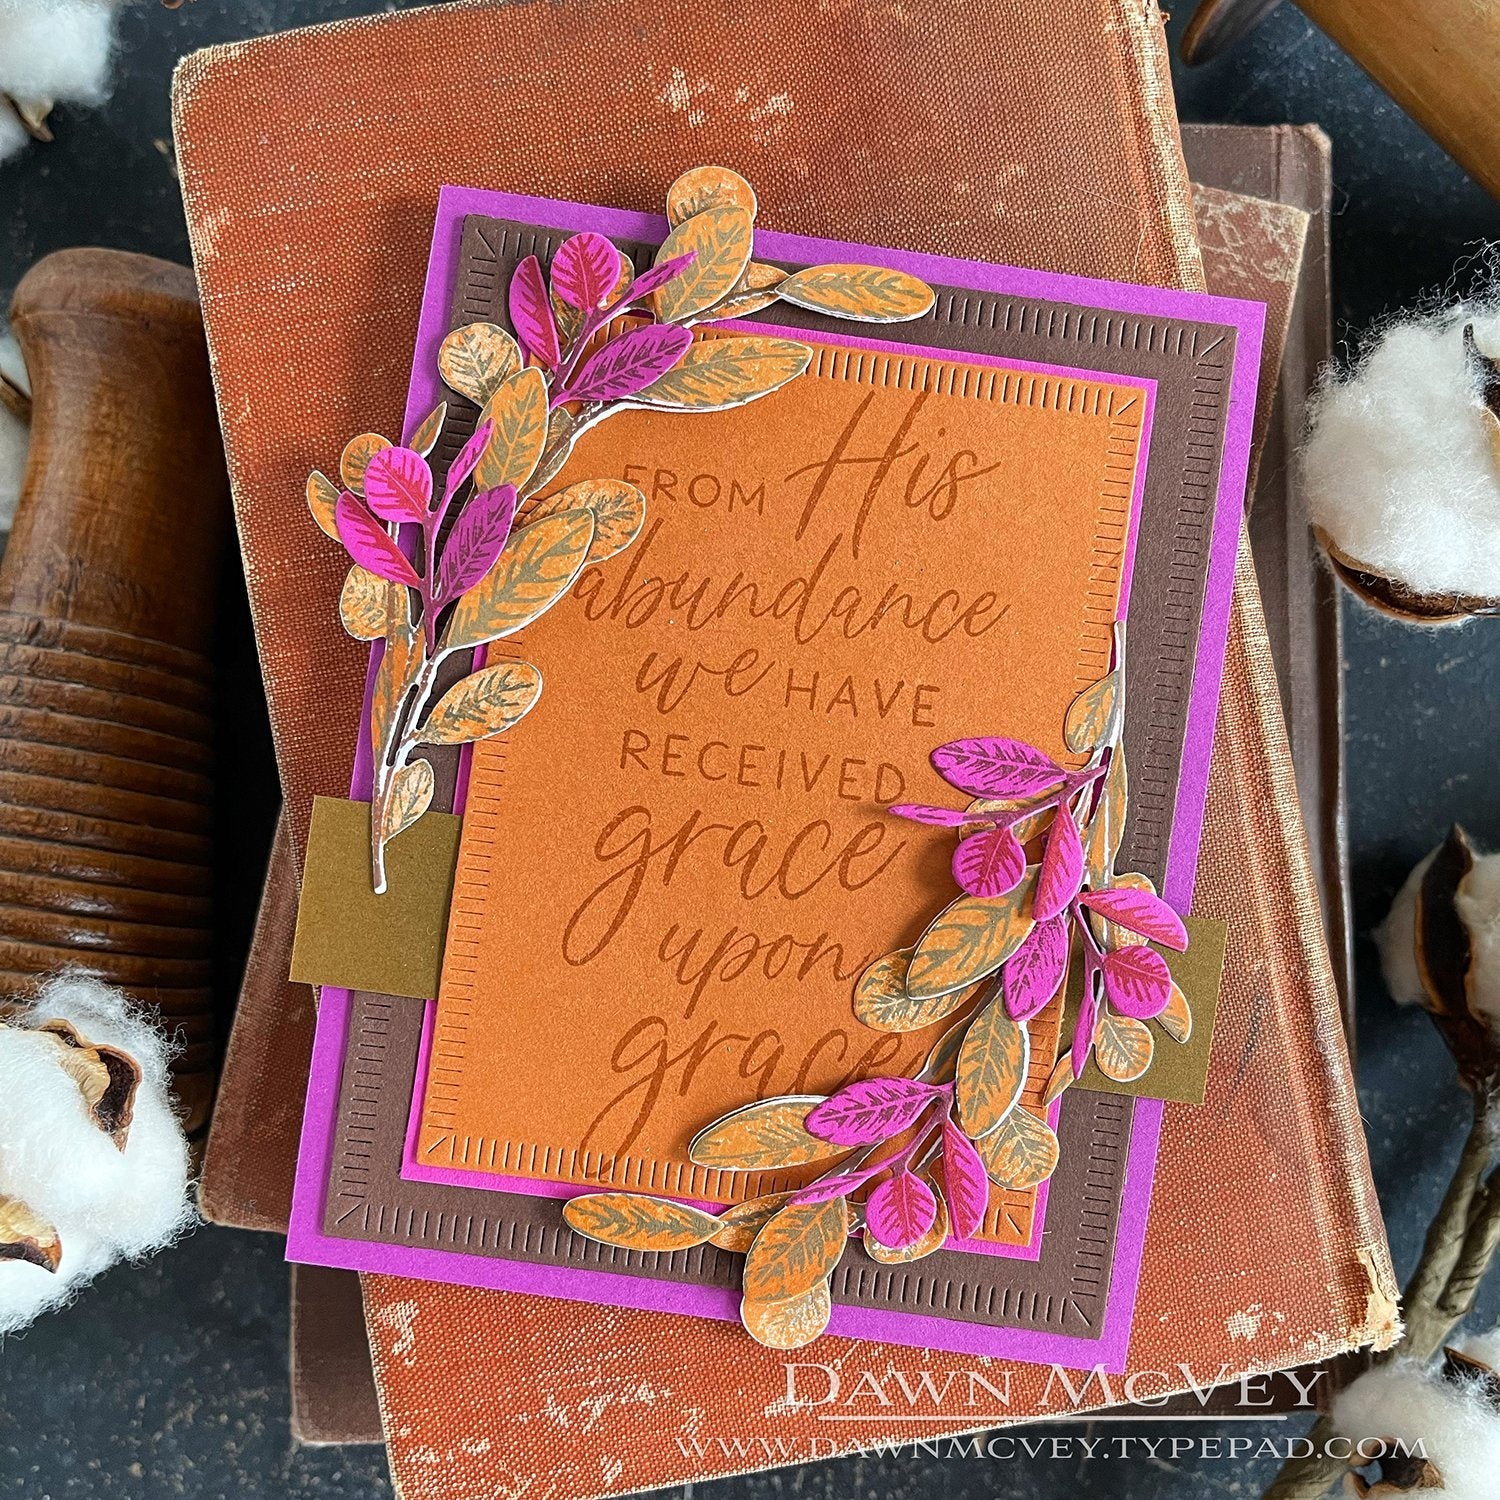 FROM His
abundance
we HAVE
RECEIVED
grace
upon
grace
DAWN MCVEY
WWW.DAWNMCVEY.TYPEPAD.COM